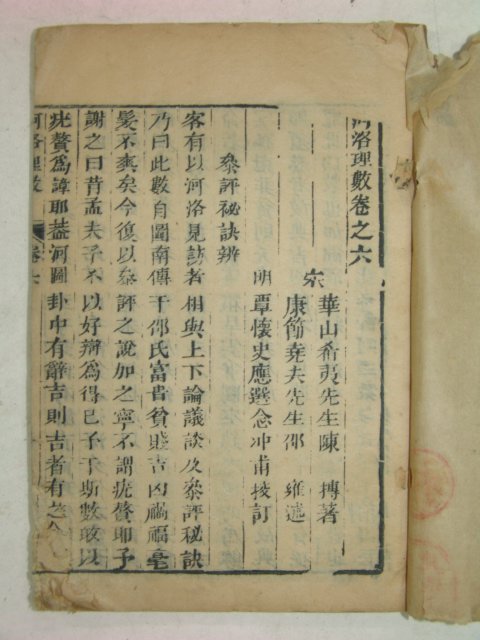 河洛理數卷之六
宋
華山希夷先生陳 摶著
康節堯夫先生邵 雍述
明
覃懷史應選念冲甫挍訂
叅評祕訣辨
客有以河洛見訪者相與上下論議談及叅評秘訣
乃曰此數自圖南傳于邵氏富貴貧賤吉凶禍福毫
髮不爽矣今復以叅評之說加之寧不謂疣贅耶予
謝之曰昔孟夫子不以好辯為得已予于斯數敢以
疣贅為諱耶葢河圖卦中有辭吉則吉者有之
河洛理數
卷六